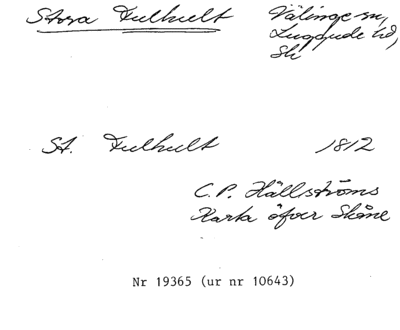 Stora Fulhult Välinge sn,
Luggude hd,
Sk
St. Fulhult 1812
C.P. Hällströms
Karta öfver Skåne
Nr 19365 (ur nr 10643)